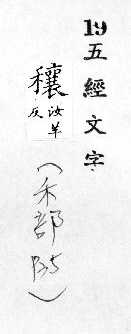 19五經文字
穰汝羊反
(禾部 )